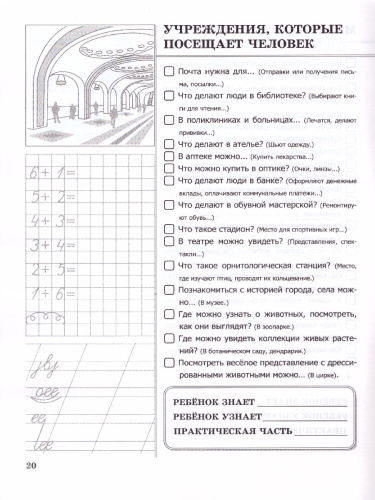 УЧРЕЖДЕНИЯ, КОТОРЫЕ
ПОСЕЩАЕТ ЧЕЛОВЕК
Почта нужна для... (Отправки или получения пись-
ма, посылки...)
Что делают люди в библиотеке? (Выбирают кни-
ги для чтения...)
В поликлиниках и больницах... (Лечатся, делают
прививки...)
Что делают в ателье? (Шьют одежду.)
В аптеке можно... (Купить лекарства...)
Что можно купить в оптике? (Очки, линзы...)
Что делают люди в банке? (Оформляют денежные
вклады, оплачивают коммунальные платежи...)
Что делают в обувной мастерской? (Ремонтиру-
ют обувь...)
Что такое стадион? (Место для спортивных игр...)
В театре можно увидеть? (Представления, спек-
такли...)
Что такое орнитологическая станция? (Место,
где изучают птиц, проводят их кольцевание.)
Познакомиться с историей города, села мож-
но... (В музее.)
Где можно узнать о животных, посмотреть,
как они выглядят? (В зоопарке.)
Где можно увидеть коллекции живых расте-
ний? (В ботаническом саду, дендрарии.)
Посмотреть весёлое представление с дресси-
рованными животными можно... (В цирке.)
РЕБЁНОК ЗНАЕТ
РЕБЁНОК УЗНАЕТ
ПРАКТИЧЕСКАЯ ЧАСТЬ
6+1=
5+2=
4+3=
3+4=
2+5=
1+6=
20